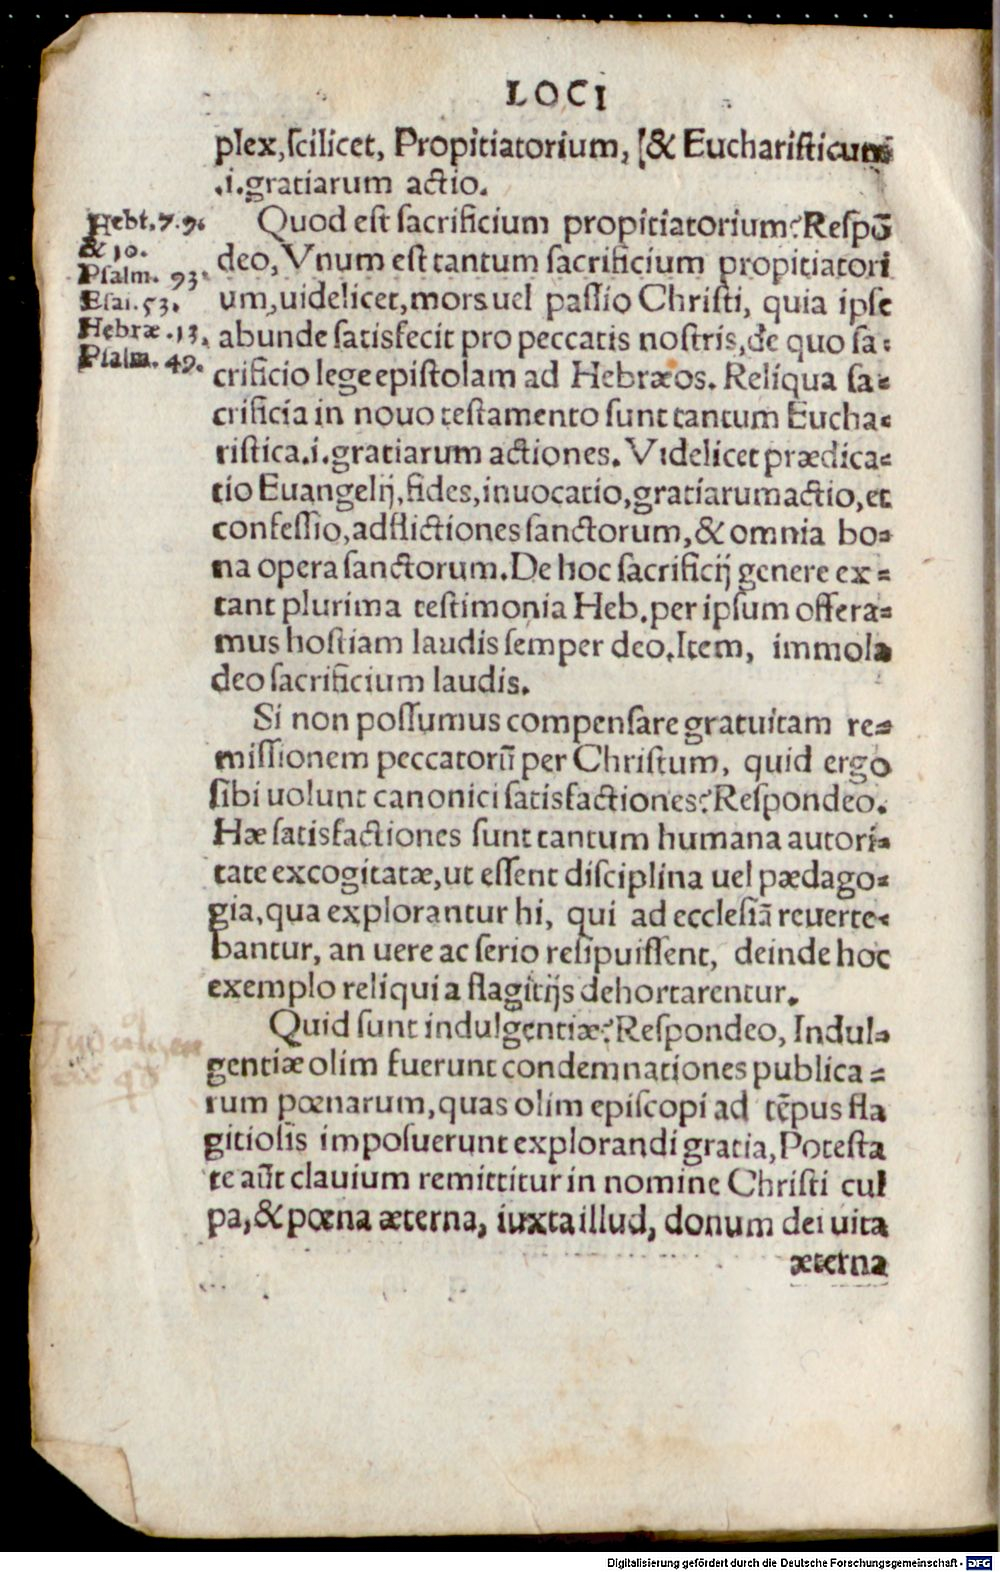 LOCI
plex,ſcilicet, Propitiatorium, [& Euchariſticum
.i.gratiarum actio.
Quod eſt ſacrificium propitiatorium? Reſpō
deo, Vnum eſt tantum ſacrificium propitiatori
um,uidelicet,mors uel paſſio Chriſti, quia ipſe
abunde ſatisfecit pro peccatis noſtris,de quo ſa-
crificio lege epiſtolam ad Hebræos. Reliqua ſa-
crificia in nouo teſtamento ſunt tantum Eucha-
riſtica.i.gratiarum actiones. Videlicet prædica-
tio Euangelij,fides,inuocatio,gratiarumactio,et
confeſſio,adflictiones ſanctorum,& omnia bo-
na opera ſanctorum.De hoc ſacrificij genere ex-
tant plurima teſtimonia Heb.per ipſum offera-
mus hoſtiam laudis ſemper deo.Item, immola
deo ſacrificium laudis.
Si non poſſumus compenſare gratuitam re-
miſſionem peccatorū per Chriſtum, quid ergo
ſibi uolunt canonici ſatisfactiones? Reſpondeo.
Hæ ſatisfactiones ſunt tantum humana autori-
tate excogitatæ,ut eſſent diſciplina uel pædago-
gia,qua explorantur hi, qui ad eccleſiā reuerte-
bantur, an uere ac ſerio reſipuiſſent, deinde hoc
exemplo reliqui a flagitijs dehortarentur.
Quid ſunt indulgentiæ? Reſpondeo, Indul-
gentiæ olim fuerunt condemnationes publica-
rum pœnarum,quas olim epiſcopi ad tēpus fla
gitioſis impoſuerunt explorandi gratia,Poteſta
te aūt clauium remittitur in nomine Chriſti cul
pa,& pœna æterna, iuxta illud, donum dei uita
æterna
Hebt.7.9.
& 10.
Pſalm. 93.
Eſai.53.
Hebræ.13.
Pſalm. 49.
Indulgen
Digitalisierung gefördert durch die Deutsche Forschungsgemeinschaft - DFG